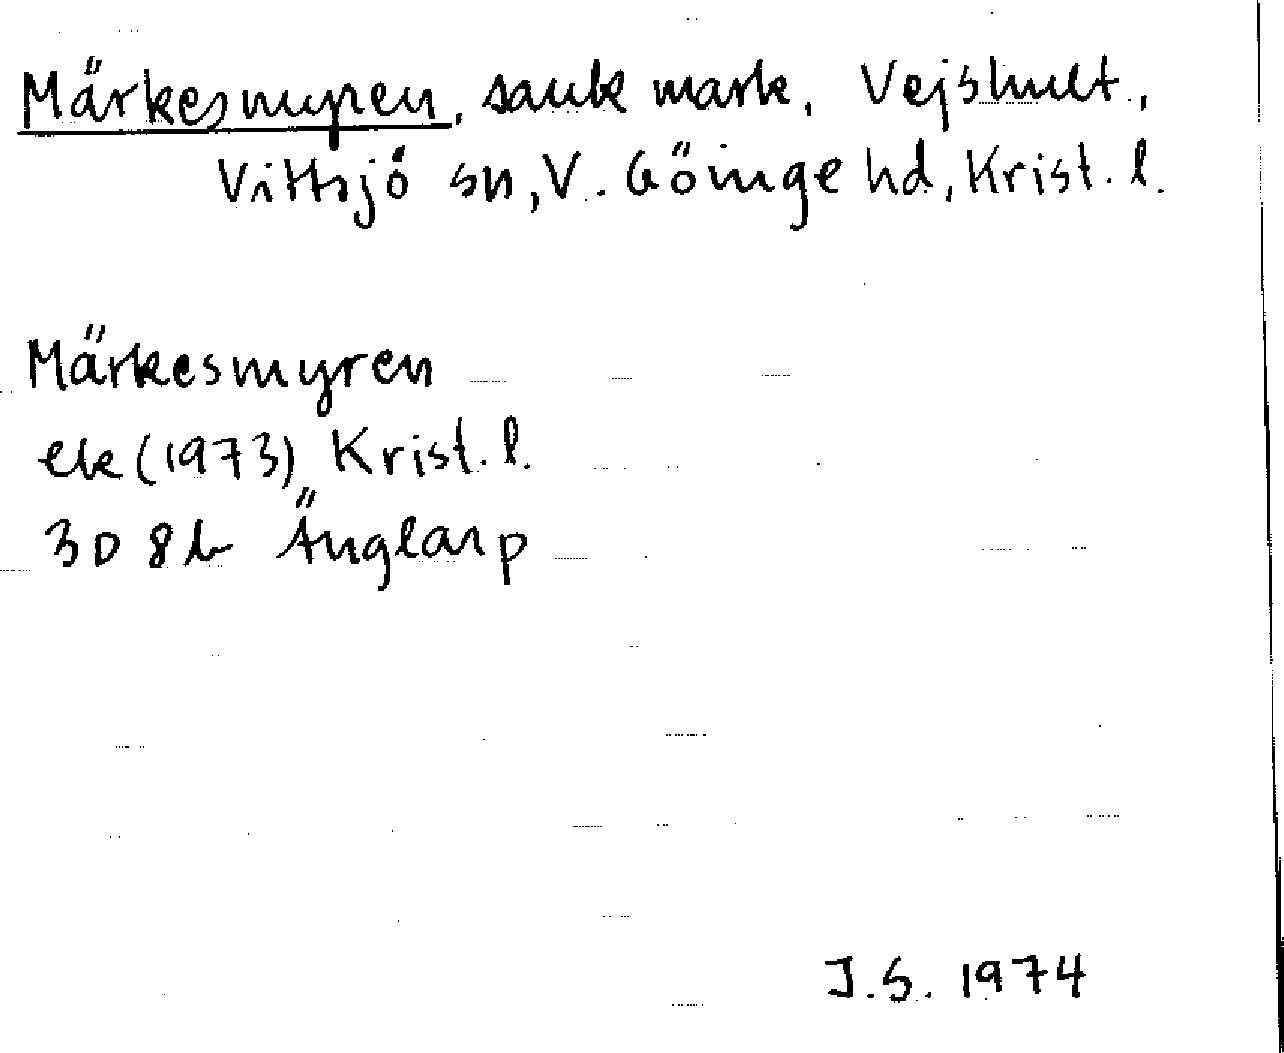 Märkesmyren, sank mark, Vejshult,
Vittsjö sn, V. Göinge hd, Krist. l.
Märkesmyren
ek (1973) Krist. l.
3D 8b Änglarp
J.S. 1974